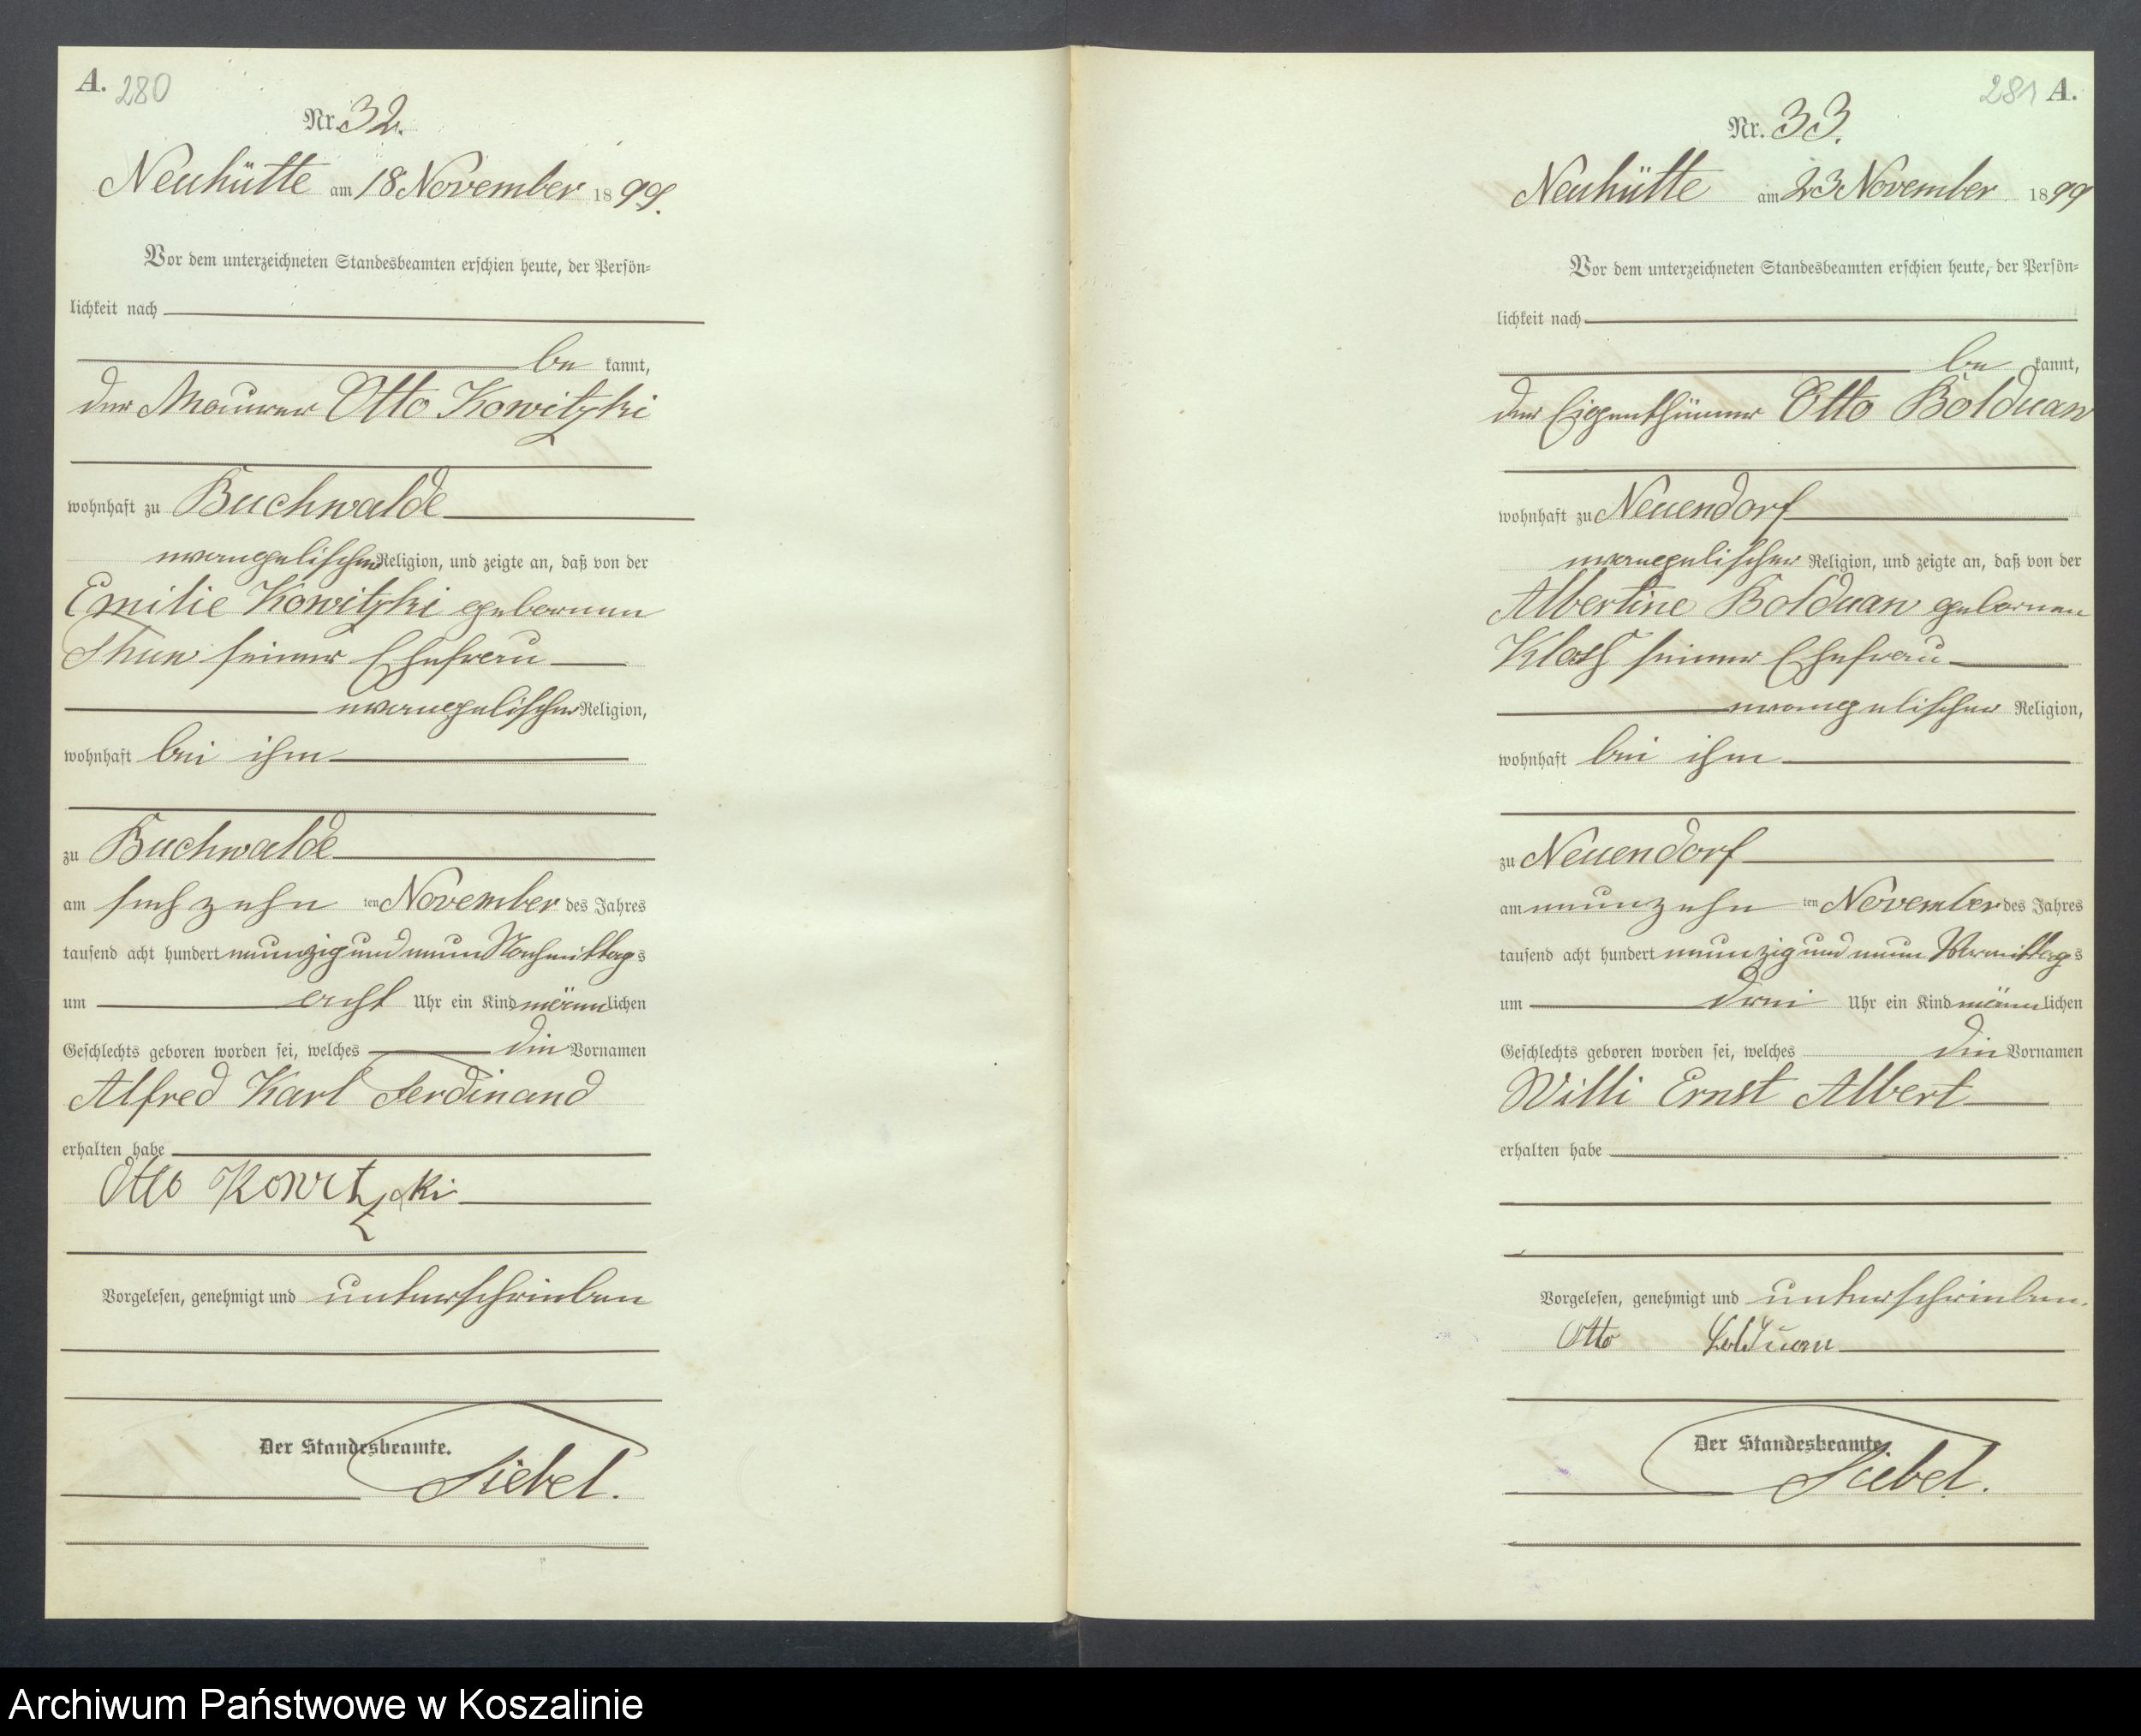 A. 280
Nr. 32.
Neuhütte am 18 November 1899.
Vor dem unterzeichneten Standesbeamten erschien heute, der Persön-
lichkeit nach
be kannt,
der Maurer Otto Kowitzki
wohnhaft zu Buchwalde
evangelischer Religion, und zeigte an, daß von der
Emilie Kowitzki geborenen
Thun seiner Ehefrau
evangelischer Religion,
wohnhaft bei ihm
zu Buchwalde
am sechzehn ten November des Jahres
tausend acht hundert neunzig und neun Nachmittags
um acht Uhr ein Kind männlichen
Geschlechts geboren worden sei, welches die Vornamen
Alfred Karl Ferdinand
erhalten habe
Otto Kowitzki
Vorgelesen, genehmigt und unterschrieben
Der Standesbeamte.
Siebel.
281 A.
Nr. 33.
Neuhütte am 23 November 1899
Vor dem unterzeichneten Standesbeamten erschien heute, der Persön-
lichkeit nach
be kannt,
der Eigenthümer Otto Bolduan
wohnhaft zu Neuendorf
evangelischer Religion, und zeigte an, daß von der
Albertine Bolduan geborenen
seiner Ehefrau
evangelischer Religion,
wohnhaft bei ihm
zu Neuendorf
am neunzehn ten November des Jahres
tausend acht hundert neunzig und neun Vormittags
um drei Uhr ein Kind männlichen
Geschlechts geboren worden sei, welches die Vornamen
Willi Ernst Albert
erhalten habe
Vorgelesen, genehmigt und unterschrieben.
Otto Bolduan
Der Standesbeamte.
Siebel.
Archiwum Państwowe w Koszalinie